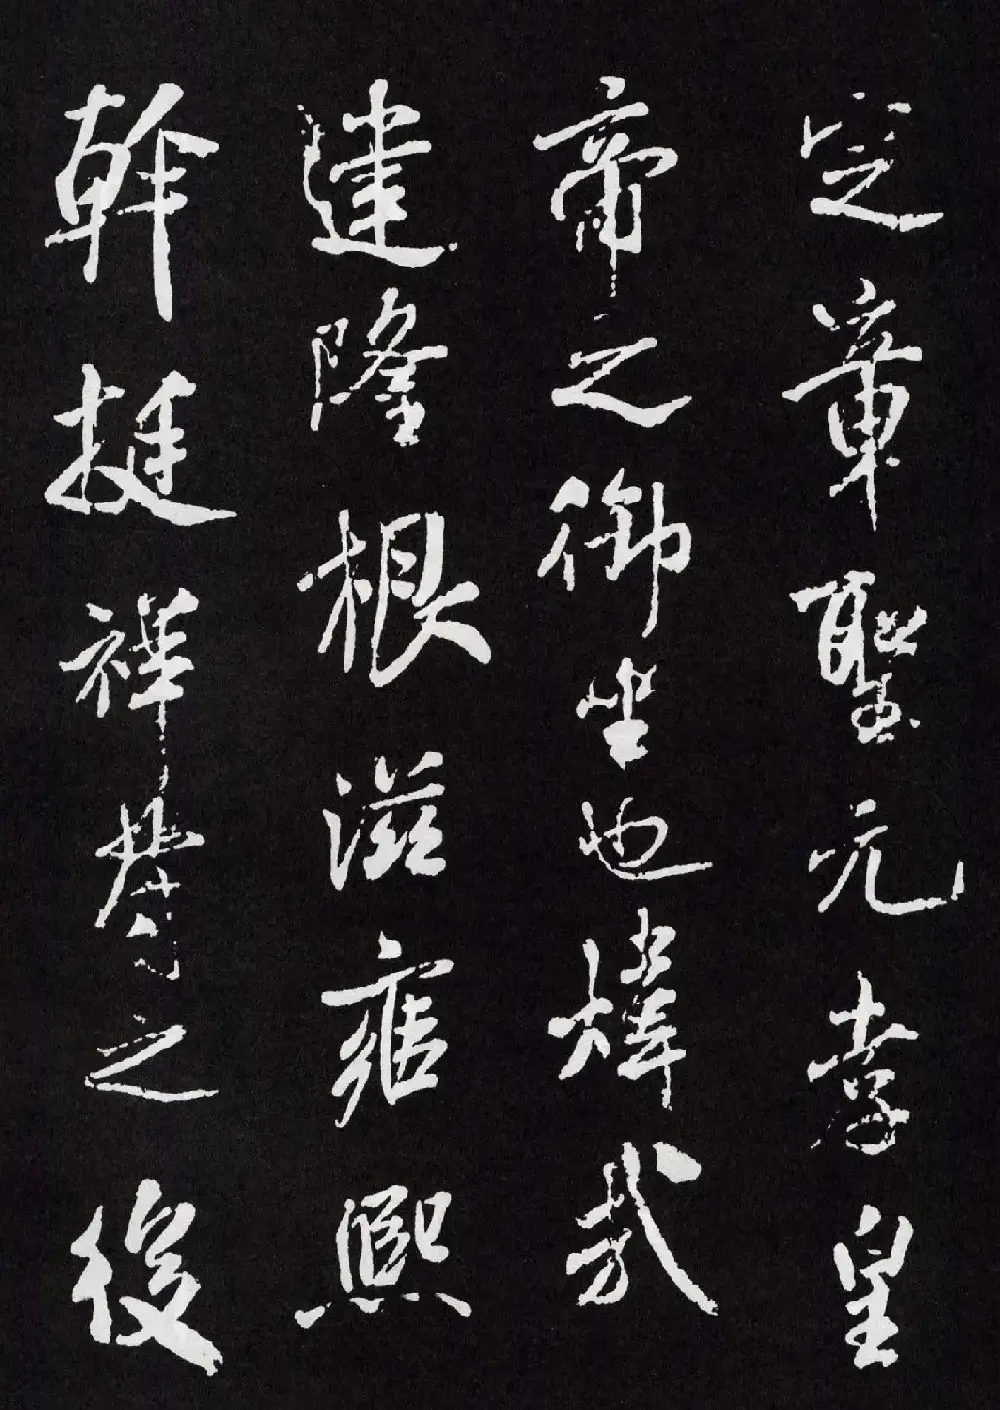 定章聖元孝皇
帝之御坐也煒武
建隆根滋雍熙
幹挺祥符之後